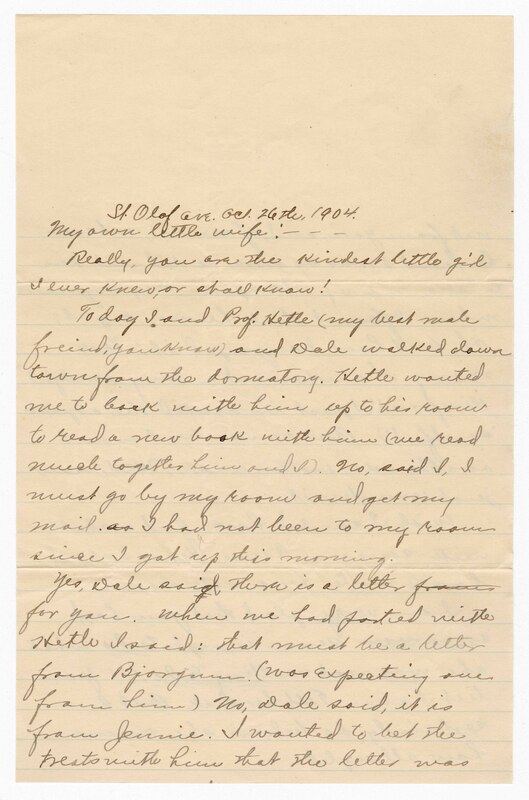 St. Olaf Ave. Oct. 26th, 1904.
My own little wife! - - -
Really, you are the kindest little girl
I ever knew, or shall know!
Today I and Prof. Hetle (my best male
freind, you know) and Dale walked down
town from the dormatory. Hetle wanted
me to back with him up to his room
to read a new book with him (we read
much together him and I). No, said I, I
must go by my room and get my
mail. as I had not been to my room
since I got up this morning.
Yes, Dale said, there is a letter from
for you. When we had parted with
Hetle I said: that must be a letter
from Bjorgum. (was expecting one
from him) No, Dale said, it is
from Jennie. I wanted to bet the
treats with him that the letter was